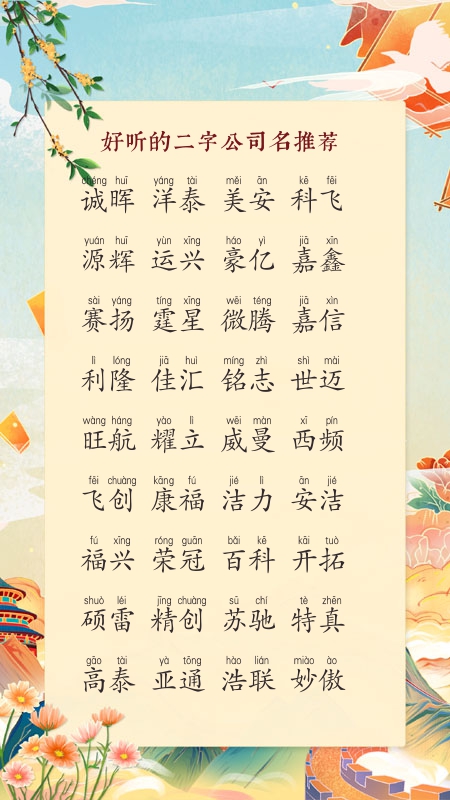 好听的二字公司名推荐
chéng huī yáng tài měi ān kē fēi
诚晖 洋泰 美安 科飞
yuán huī yùn xīng háo yì jiā xīn
源辉 运兴 豪亿 嘉鑫
sài yáng tíng xīng wēi téng jiā xìn
赛扬 霆星 微腾 嘉信
lì lóng jiā huì míng zhì shì mài
利隆 佳汇 铭志 世迈
wàng háng yào lì wēi màn xī pín
旺航 耀立 威曼 西频
fēi chuàng kāng fú jié lì ān jié
飞创 康福 洁力 安洁
fú xīng róng guān bǎi kē kāi tuò
福兴 荣冠 百科 开拓
shuò léi jīng chuàng sū chí tè zhēn
硕雷 精创 苏驰 特真
gāo tài yà tōng hào lián miào ào
高泰 亚通 浩联 妙傲